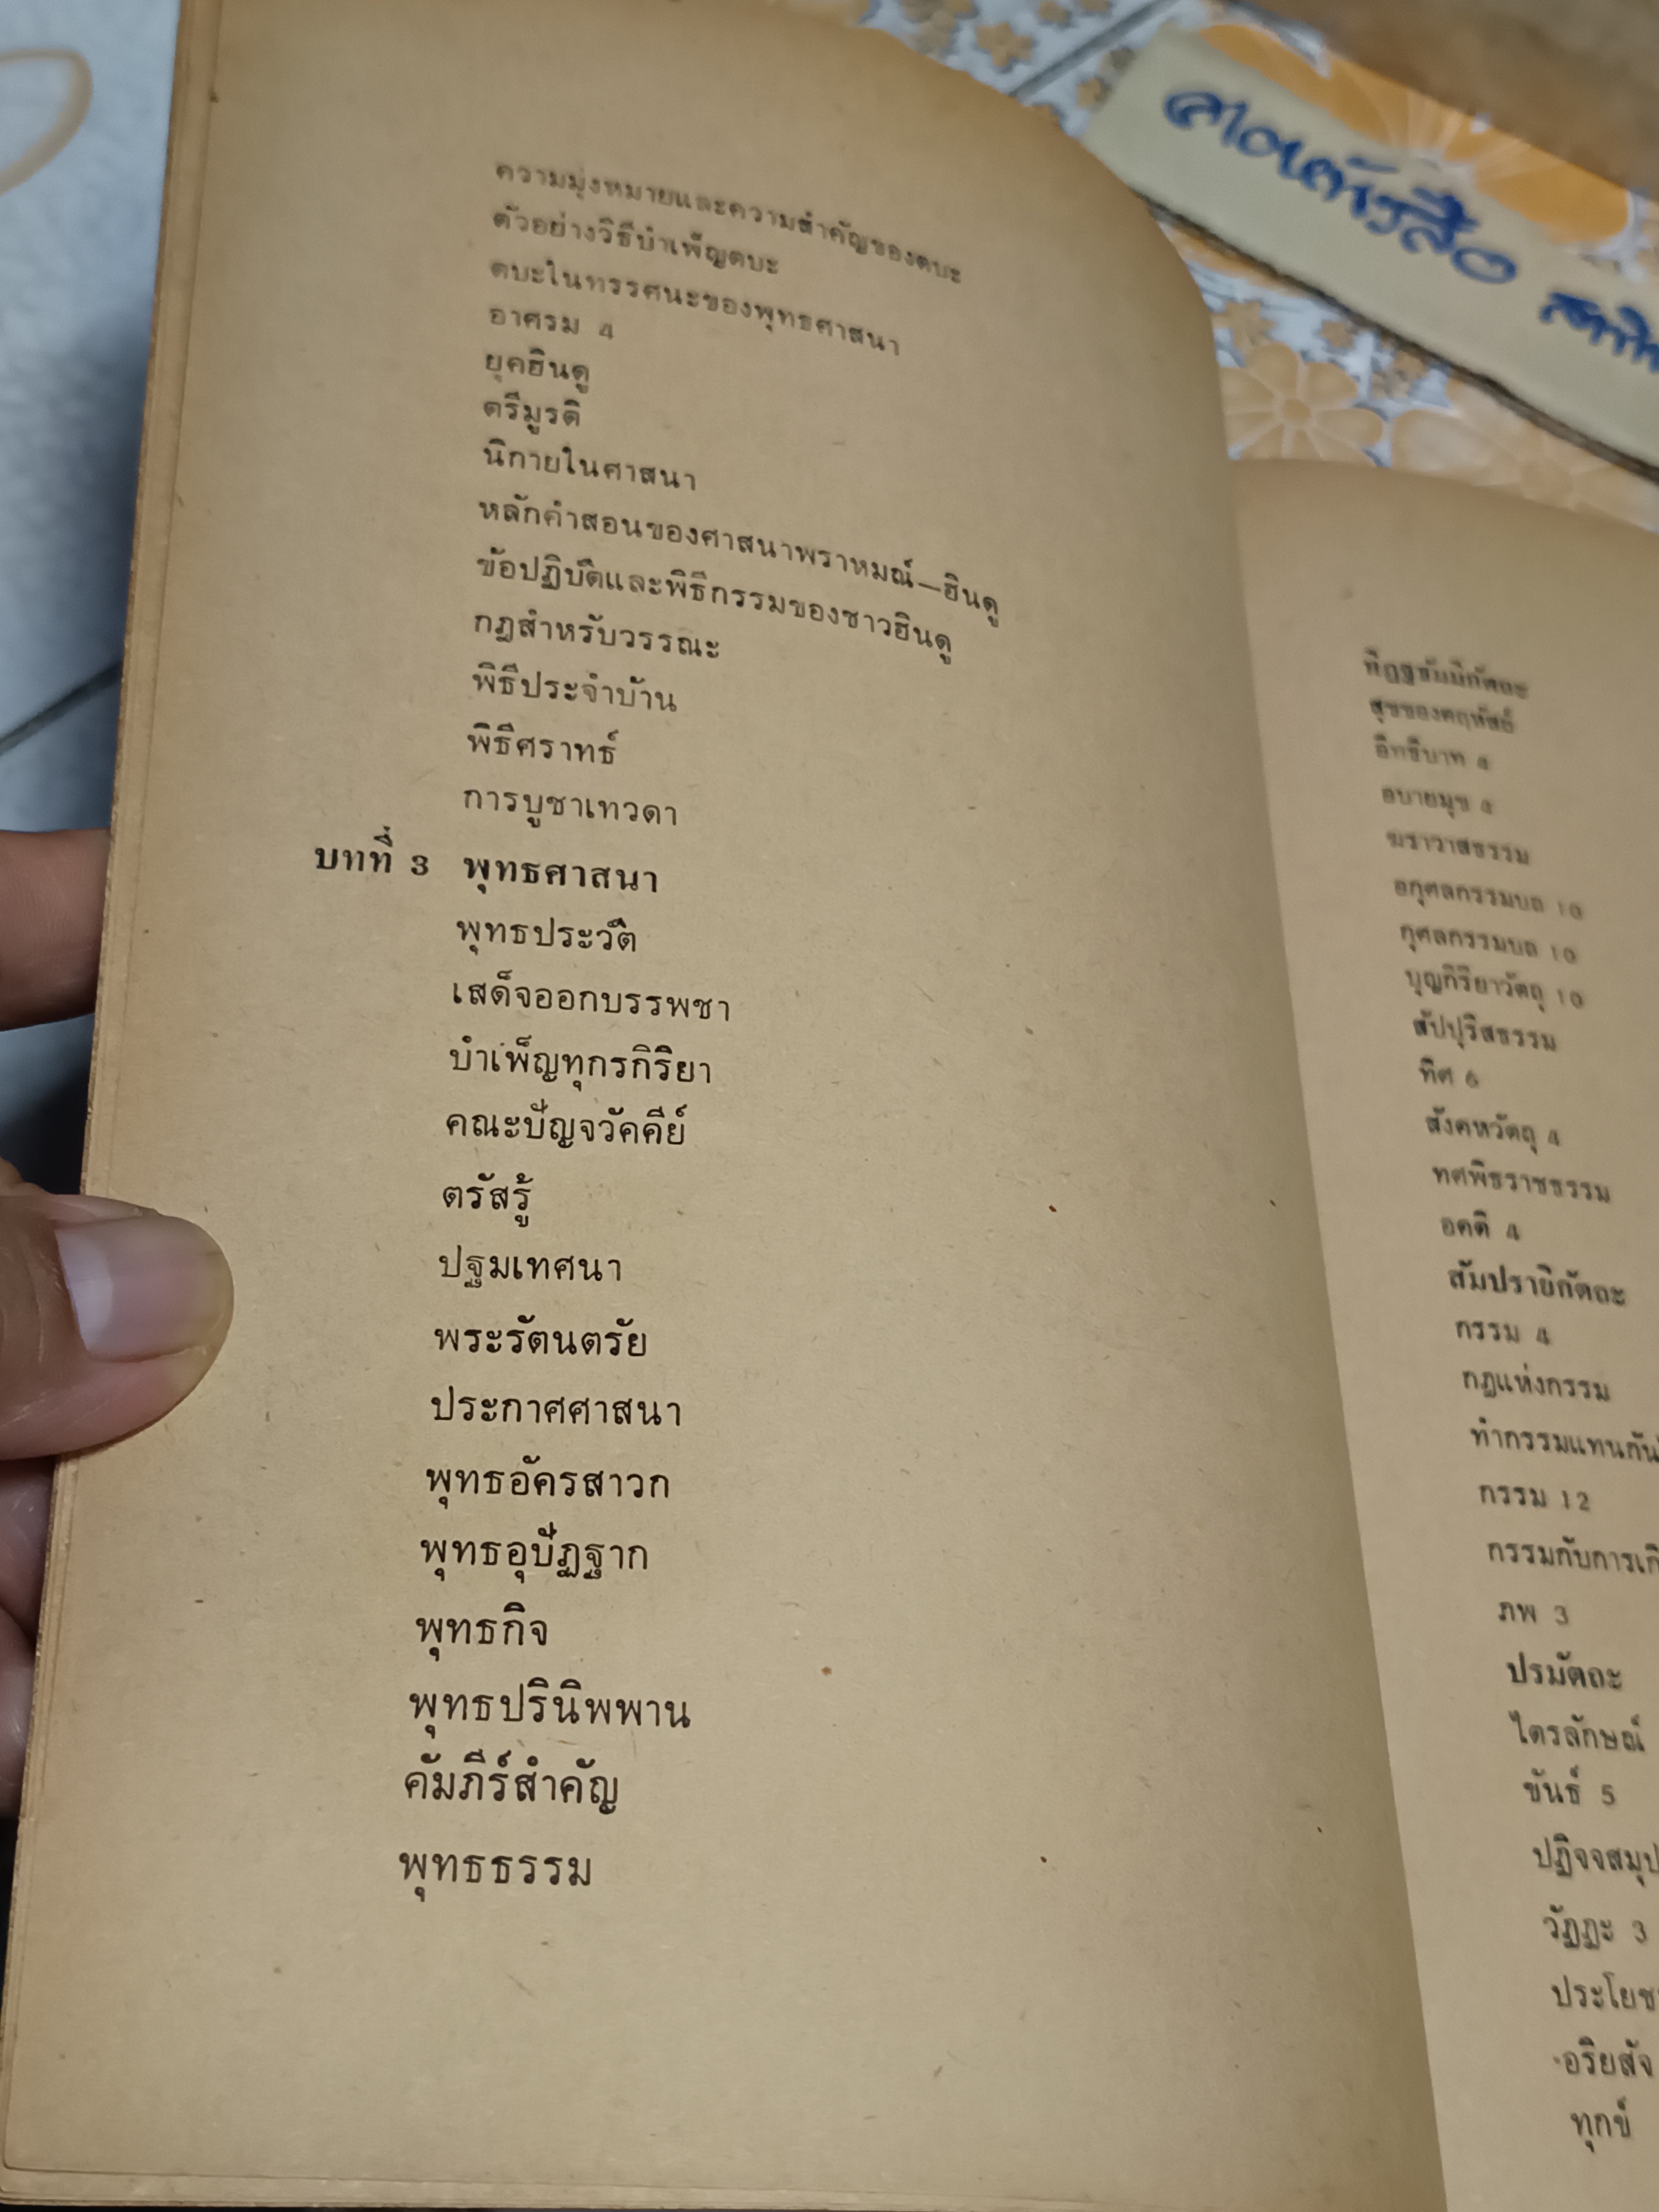 ความมุ่งหมายและความสำคัญของตบะ
ตัวอย่างวิธีบำเพ็ญตบะ
ตบะในทรรศนะของพุทธศาสนา
อาศรม 4
ยุคฮินดู
ตรีมูรติ
นิกายในศาสนา
หลักคำสอนของศาสนาพราหมณ์—ฮินดู
ข้อปฏิบัติและพิธีกรรมของชาวฮินดู
กฎสำหรับวรรณะ
พิธีประจำบ้าน
พิธีศราทธ์
การบูชาเทวดา
บทที่ 3 พุทธศาสนา
พุทธประวัติ
เสด็จออกบรรพชา
บำเพ็ญทุกรกิริยา
คณะปัญจวัคคีย์
ตรัสรู้
ปฐมเทศนา
พระรัตนตรัย
ประกาศศาสนา
พุทธอัครสาวก
พุทธอุปัฏฐาก
พุทธกิจ
พุทธปรินิพพาน
คัมภีร์สำคัญ
พุทธธรรม
ทิฏฐธัมมิกัตถะ
สุขของคฤหัสถ์
อิทธิบาท 4
อบายมุข 4
ฆราวาสธรรม
อกุศลกรรมบถ 10
กุศลกรรมบถ 10
บุญกิริยาวัตถุ 10
สัปปุริสธรรม
ทิศ 6
สังคหวัตถุ 4
ทศพิธราชธรรม
อคติ 4
สัมปรายิกัตถะ
กรรม 4
กฎแห่งกรรม
ทำกรรมแทนกัน
กรรม 12
กรรมกับการเกิ
ภพ 3
ปรมัตถะ
ไตรลักษณ์
ขันธ์ 5
ปฏิจจสมุป
วัฏฏะ 3
ประโยช
อริยสัจ
ทุกข์